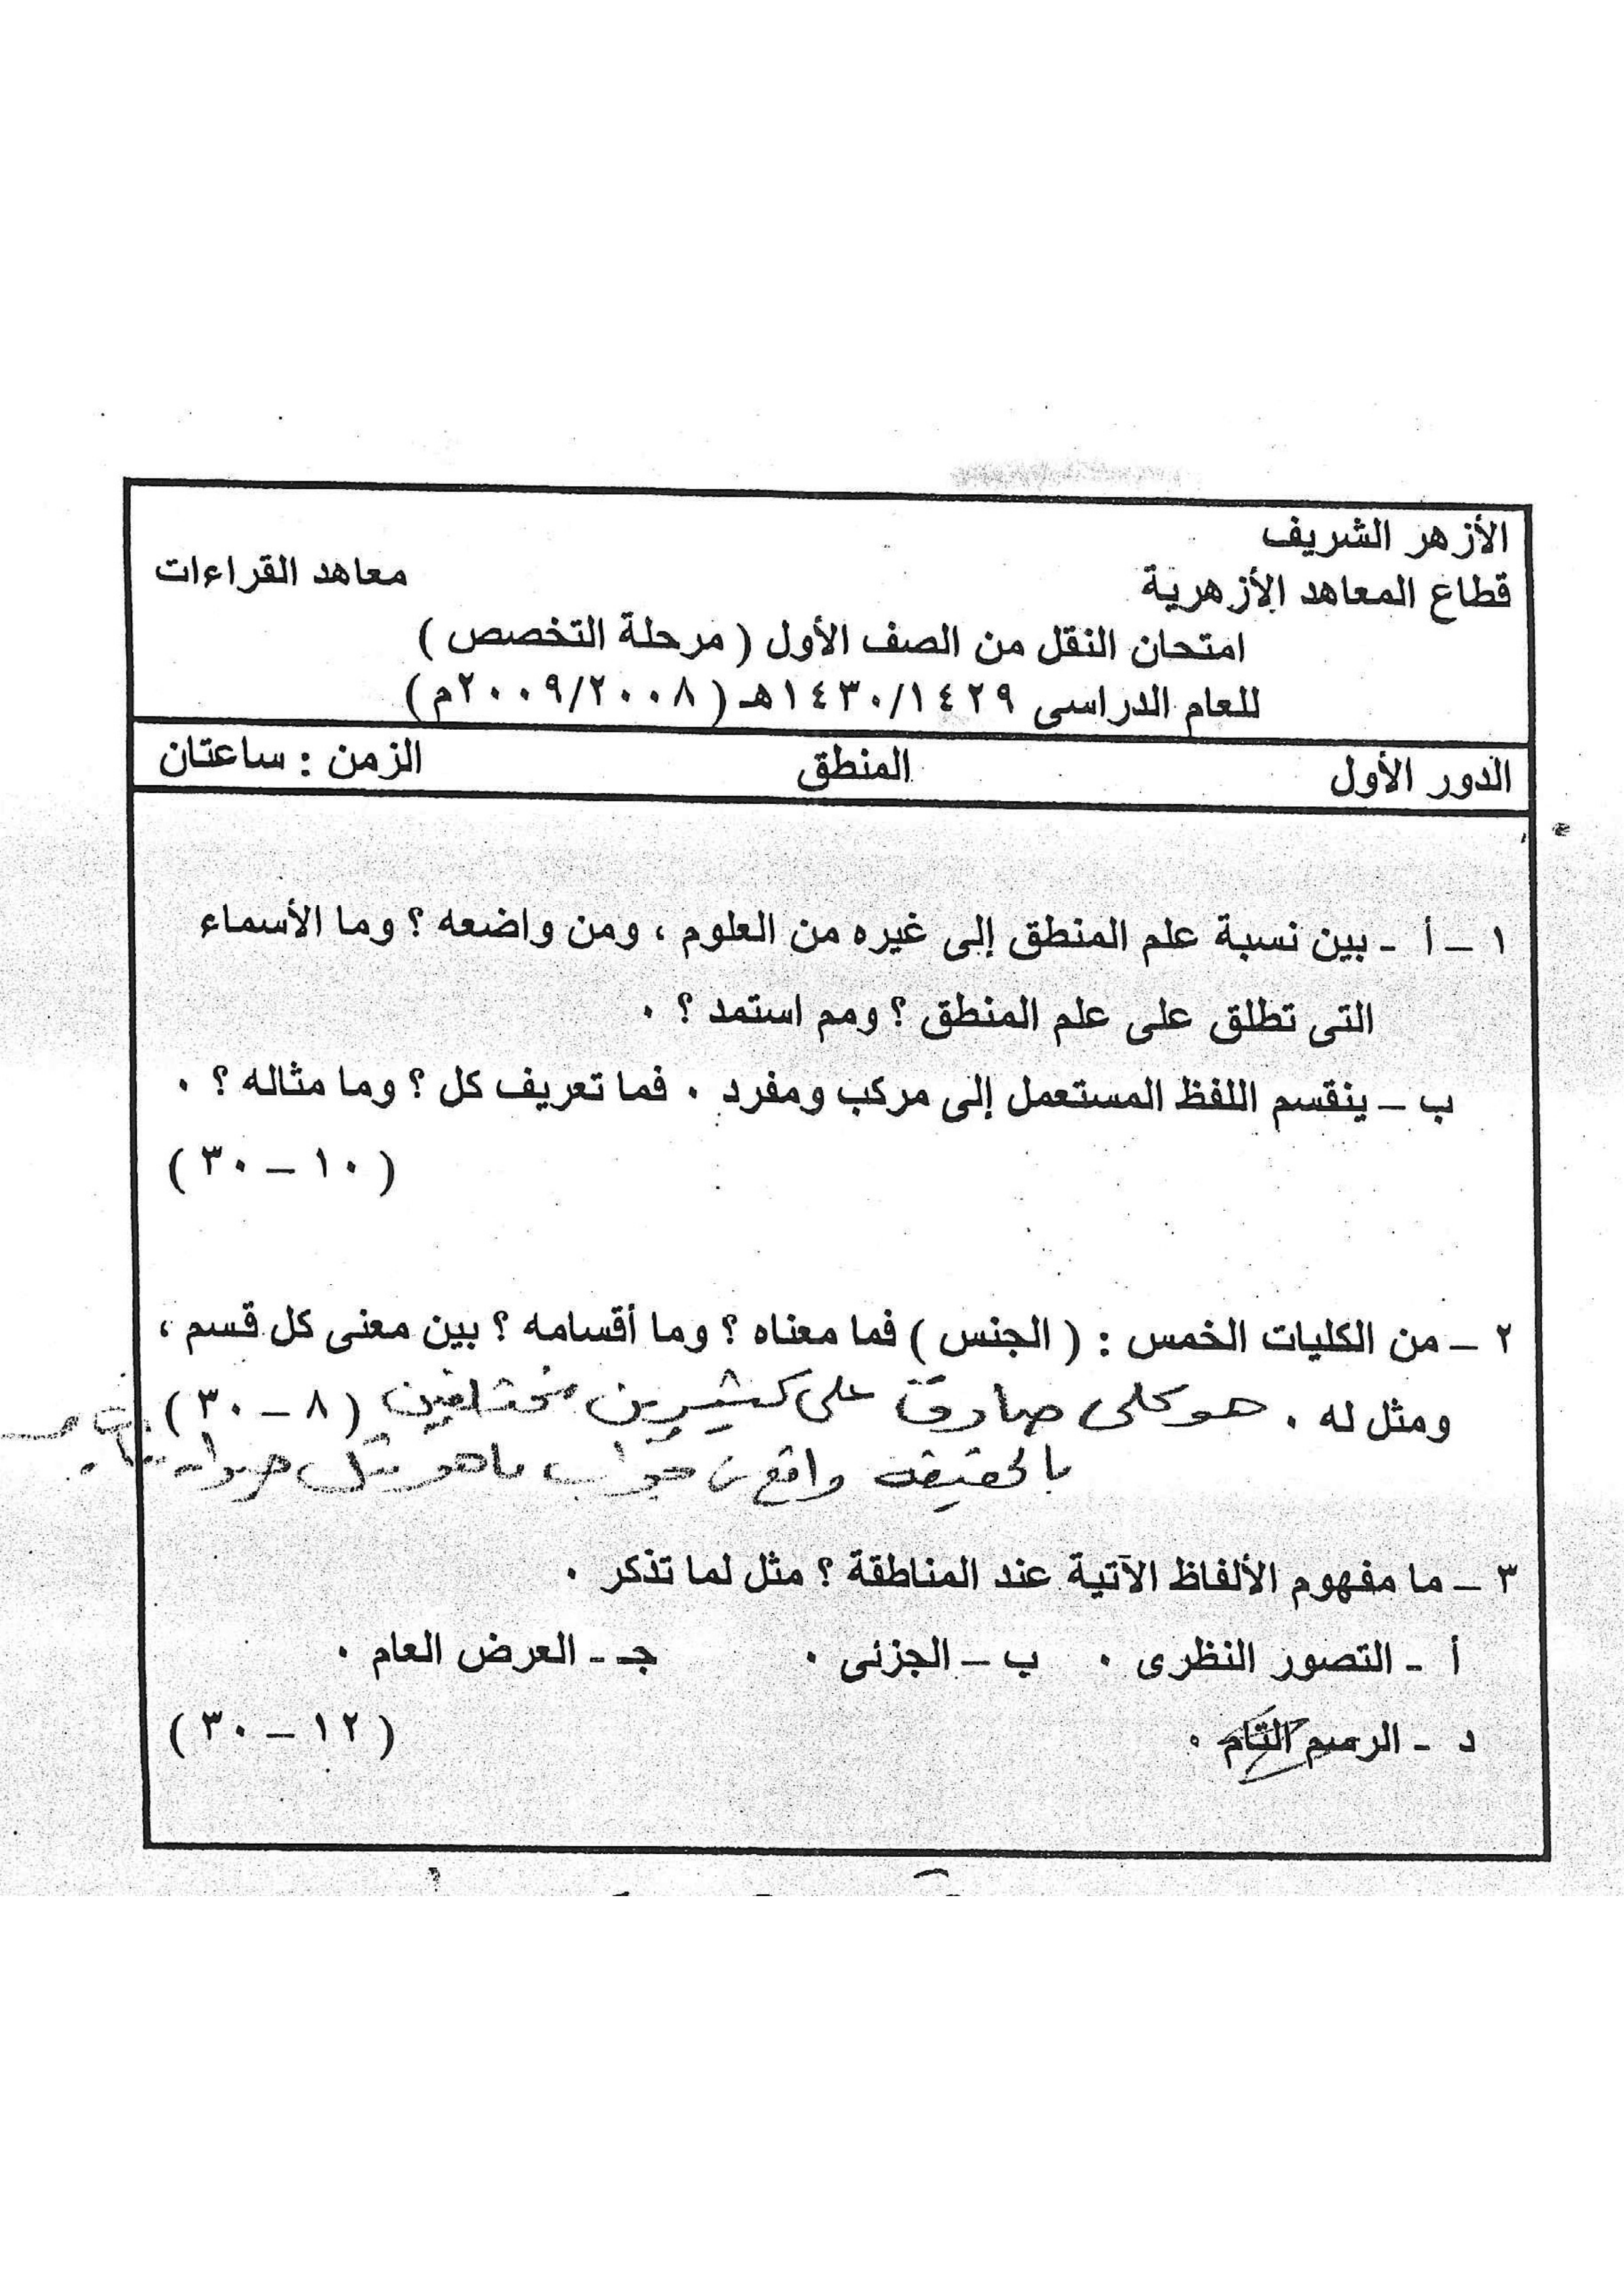 الأزهر الشريف
قطاع المعاهد الأزهرية
معاهد القراءات
امتحان النقل من الصف الأول ( مرحلة التخصص )
للعام الدراسى ١٤٣٠/١٤٢٩هـ ( ٢٠٠٩/٢٠٠٨م )
الدور الأول المنطق الزمن : ساعتان
١ – أ - بين نسبة علم المنطق إلى غيره من العلوم ، ومن واضعه ؟ وما الأسماء
التى تطلق على علم المنطق ؟ ومم استمد ؟ ٠
ب – ينقسم اللفظ المستعمل إلى مركب ومفرد ٠ فما تعريف كل ؟ وما مثاله ؟ ٠
( ١٠ – ٣٠ )
٢ – من الكليات الخمس : ( الجنس ) فما معناه ؟ وما أقسامه ؟ بين معنى كل قسم ،
ومثل له ٠ هو كلى صادق على كثيرين مختلفين ( ٨ – ٣٠ )
بالحقيقة واقع جواب ما هو مثل
٣ – ما مفهوم الألفاظ الآتية عند المناطقة ؟ مثل لما تذكر ٠
أ - التصور النظرى ٠ ب – الجزئى ٠ جـ - العرض العام ٠
د - الرسم التام ٠ ( ١٢ – ٣٠ )